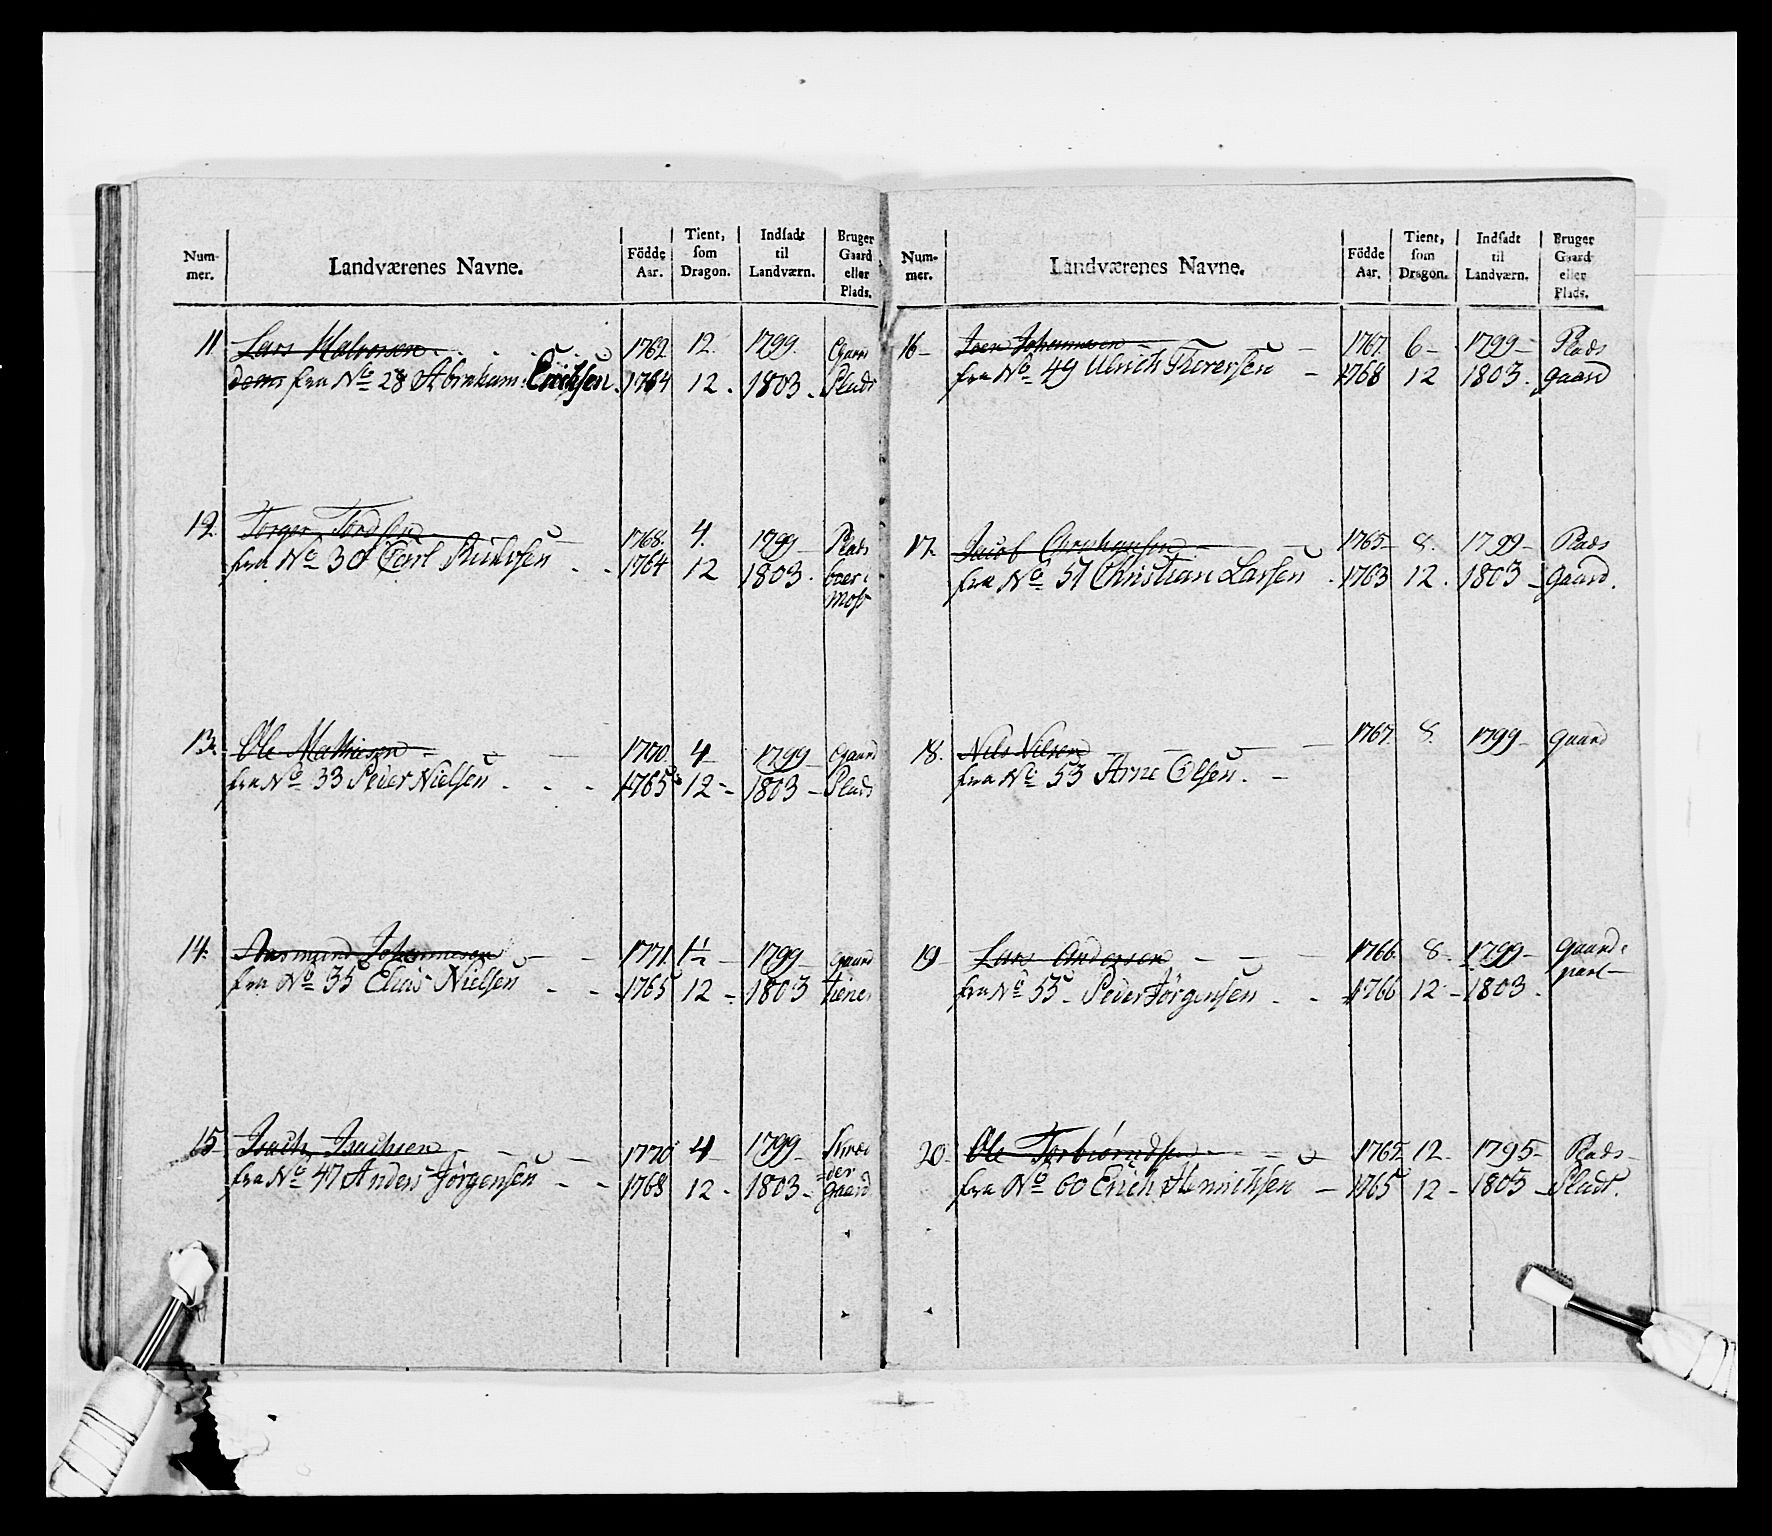 Num-mer. Landværenes Navne. Födde Aar. Tient, som Dragon. Indsadt til Landværn. Bruger Gaard eller Plads.
11 Lars Halvorsen 1762. 12. 1799. Gaard
fra No 28 Abraham Erichsen. 1764 12. 1803. Plads
12. Torger Tordsen 1768. 4. 1799 Plads
fra No 30 Carl 1764 12 1803. boer i
Mos
13. Ole Mathiesen 1770. 4 1799 Gaard
fra No 33 Peder Nielsen 1765 12 1803 Plads
14. Aasmund Johannesen 1771. 1½ 1799 gaard
fra No 35 Elias Nielsen 1765 12 1803 tiener
15 Isach Isachsen 1770 4 1799
fra No 47 Anders Jörgensen 1768 12 1803 gaard
Num-mer. Landværenes Navne. Födde Aar. Tient, som Dragon. Indsadt til Landværn. Bruger Gaard eller Plads.
16 Joen Johannesen 1767. 6 1799 Plads
fra No 49 Ulrich Thoresen 1768 12 1803. gaard
17. Jacob 1765 8. 1799 Plads
fra No 51 Christian Larsen 1763 12. 1803 gaard.
18. Nils Nilsen 1767. 8. 1799 gaard
fra No 53 Arne Olsen.
19 Lars Andersen 1766. 8. 1799 gaard
part
fra No 55 Peder Jörgensen 1766 12 1803.
20. Ole Torbiörndsen 1762 12 1795 Plads
fra No 60 Erich Henrichsen 1765 12 1803 Plads.